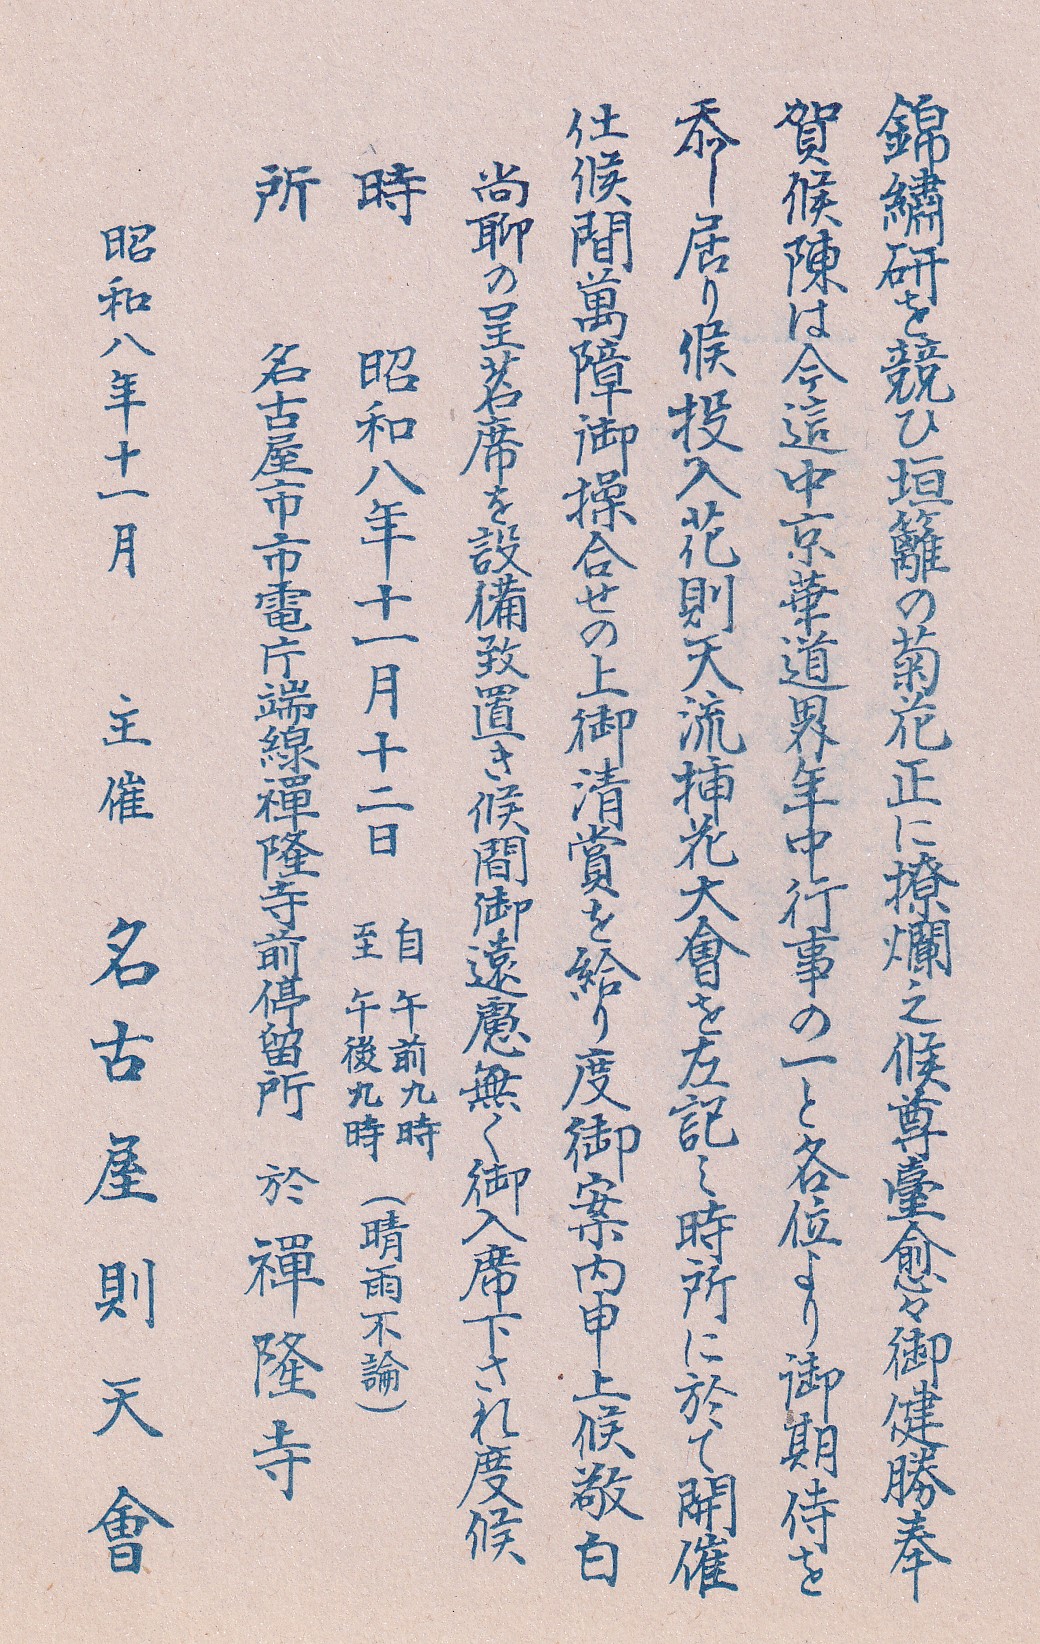 錦繡研を競ひ垣籬の菊花正に撩爛之候尊臺愈々御健勝奉
賀候陳は今這中京華道界年中行事の一と各位より御期待を
忝し居り候投入花則天流挿花大會を左記之時所に於て開催
仕候間萬障御操合せの上御清賞を給り度御案内申上候敬白
尚聊の呈茗席を設備致置き候間御遠慮無く御入席下され度候
時　昭和八年十一月十二日　自午前九時　至午後九時　(晴雨不論)
所　名古屋市市電庁端線禪隆寺前停留所　於禪隆寺
昭和八年十一月　主催　名古屋則天會